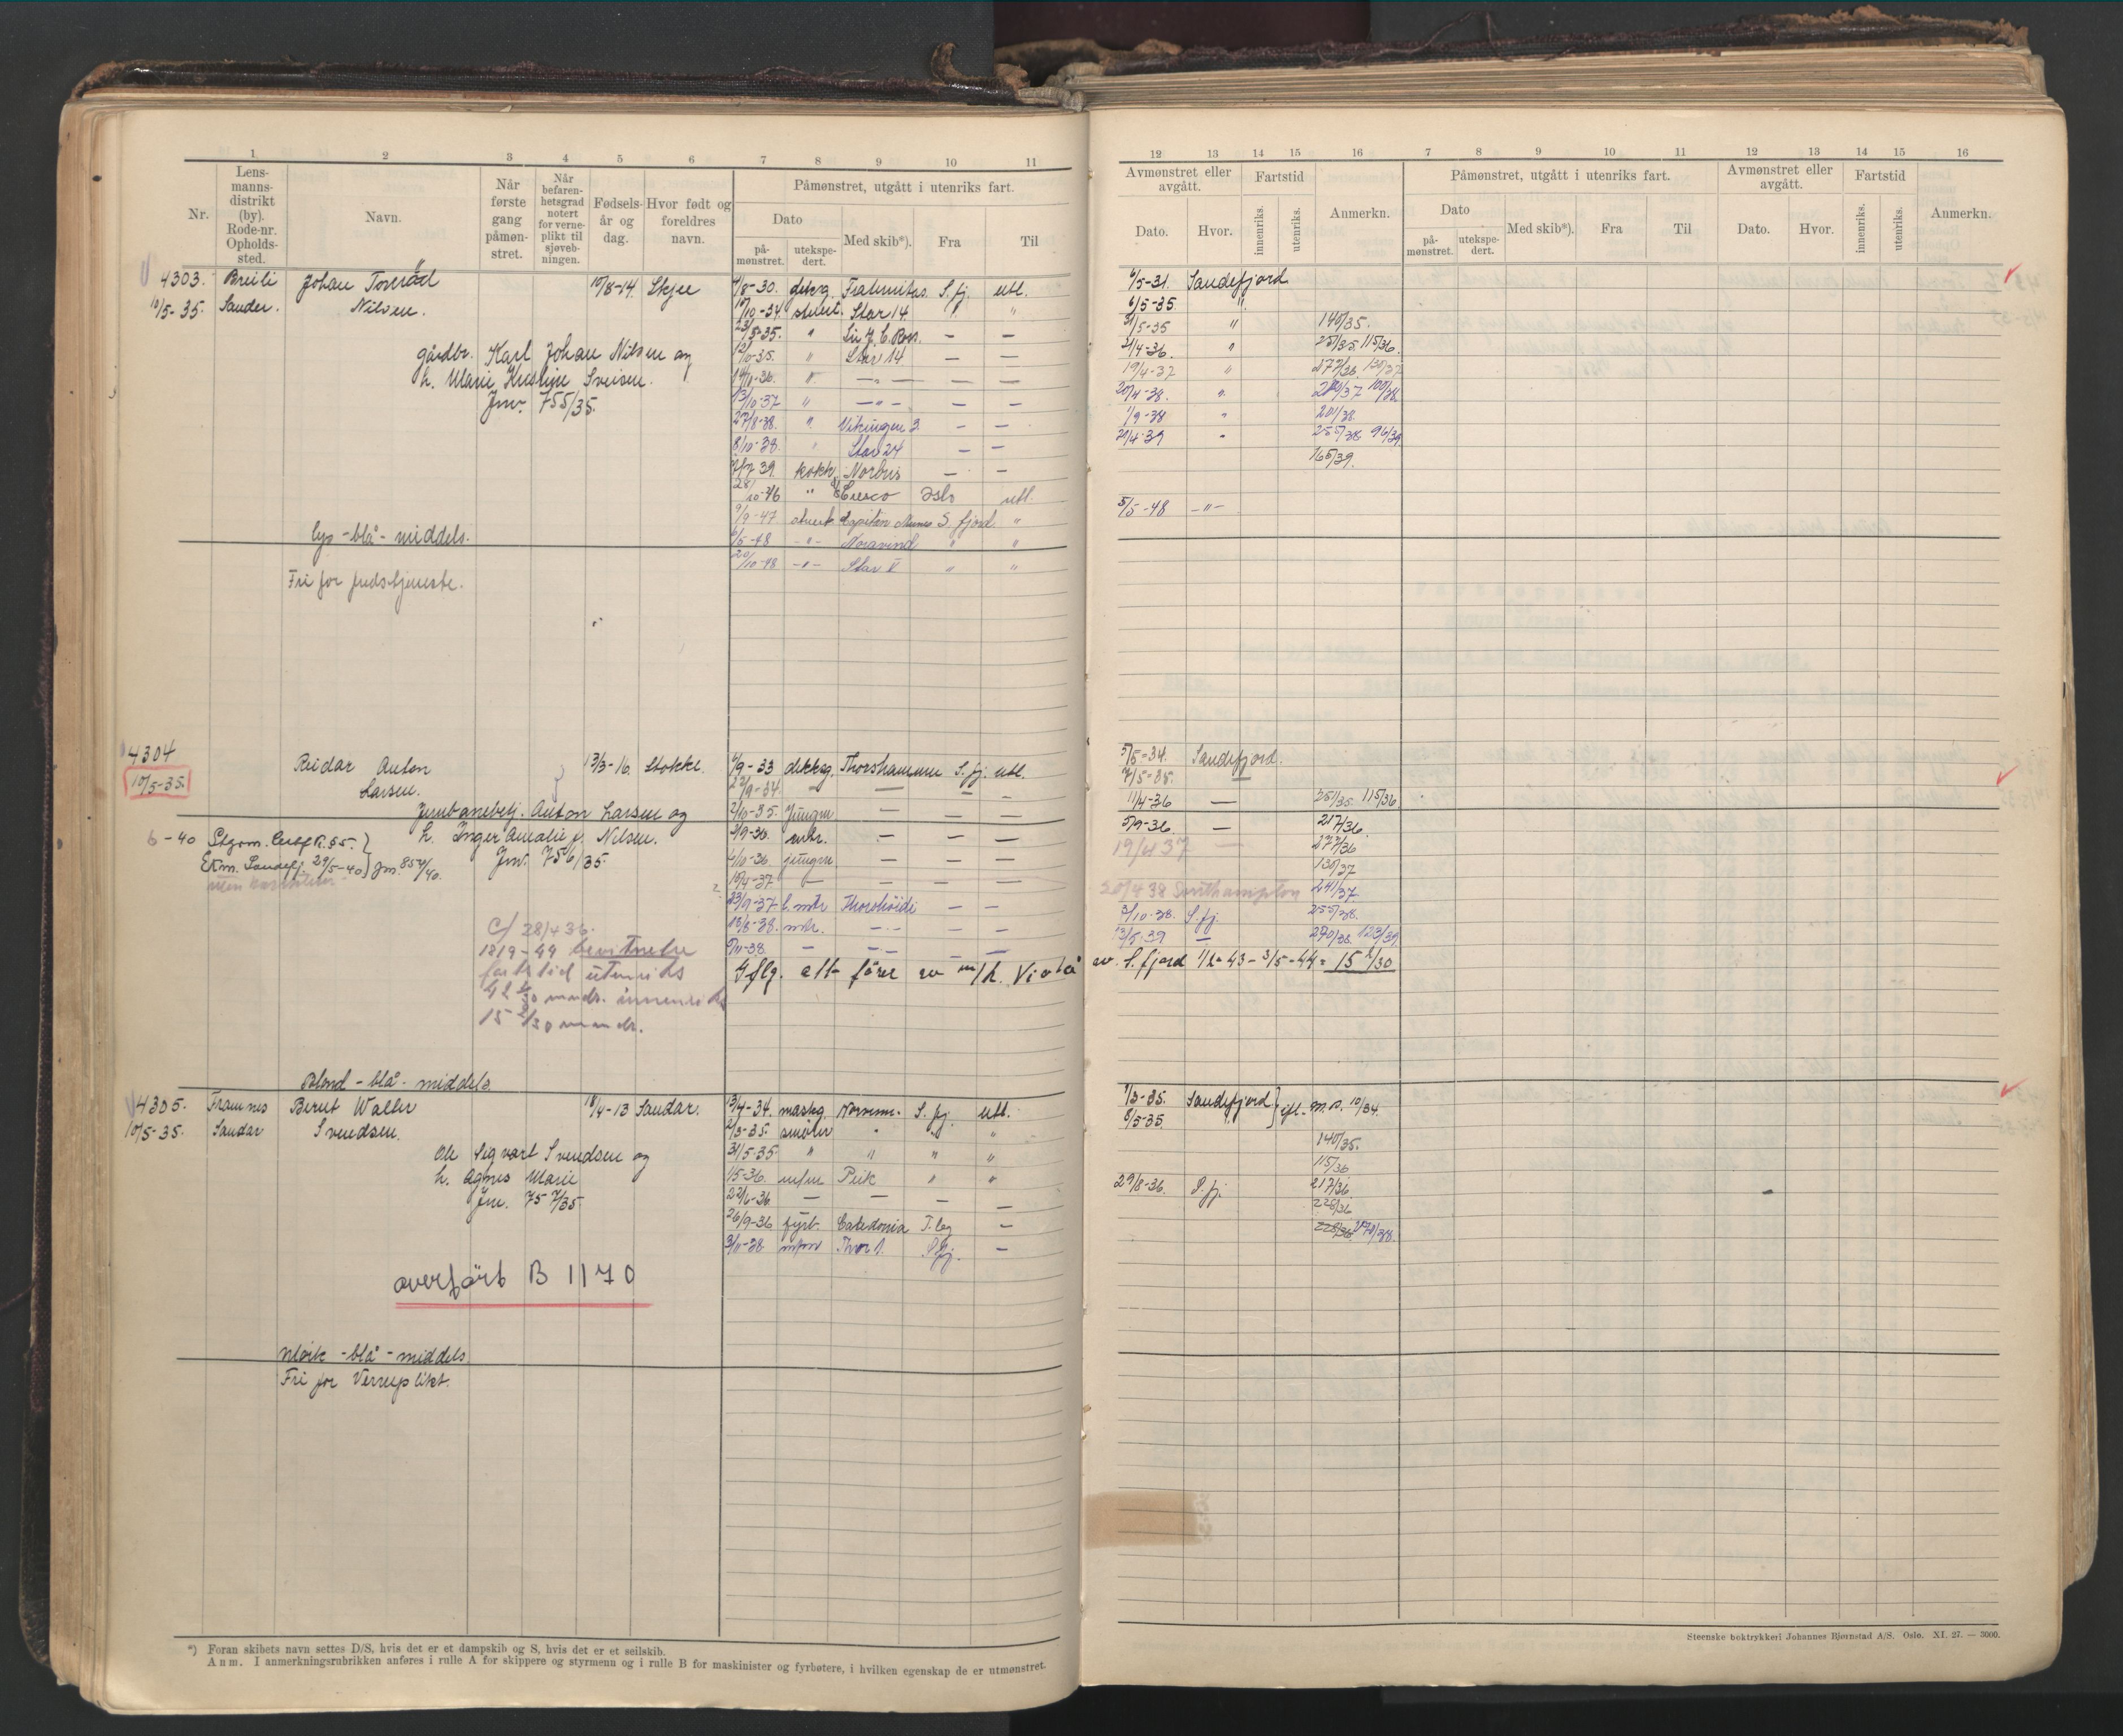 1 2 3 4 5 6 7 8 9 10 11
Nr.
Lens-
manns-
distrikt
(by).
Rode-nr.
Opholds-
sted.
Navn.
Når
første
gang
påmøn-
stret.
Når
befaren-
hetsgrad
notert
for verne-
plikt til
sjøveb-
ningen.
Fødsels-
år og
dag.
Hvor født og
foreldres
navn.
Påmønstret, utgått i utenriks fart.
Dato
på-
mønstret.
utekspe-
dert.
Med skib*).
Fra
Til
4303. Breili Johan Torerød 10/8-14. Skjee
10/5-35. Sandar. Nilsen.
gårdbr. Karl Johan Nilsen og
h. Marie Kristine Sveisen.
Jnr. 755/35.
4/8-30. dekkg. Fraternitas. S.fj. utl.
10/10-34. stuert. Star 14 " "
23/5-35. " Sir J. C. Ross. — —
12/10-35. " Star 14 — —
14/10-36. " —"— — —
13/10-37 " —"— — —
27/8-38. " Vikingen 2 — —
8/10-38. " Star 24 — —
7/7 39. kokk Norbris — —
28/10-46 " Cresco Oslo utl.
9/9-47. stuert Kaptein S. fjord "
6/5-48 -"- Noravind " "
20/10-48 -"- Star V " "
lys - blå - middels.
Fri for fredstjeneste.
4304 Reidar Anton 13/3-16. Stokke.
10/5-35. Larsen.
Jernbanebetj. Anton Larsen og
h. Inger Amalie f. Nilsen.
Jnr. 756/35.
6-40 Stgom. Certf R. 55.
Ekm. Sandefj. 29/5-40 Jnr. 857/40.
C/ 28/4 36.
1819-44 bevitnelse
fartstid utenriks
innenriks
15 2/30 mndr.
4/9-33 dekksg. Thorshammer S.fj. utl.
22/9-34. — — — —
2/10-35. Jungm — — —
3/9-36. mtr. — — —
4/10-36. jungm — — —
15/4-37 — — — —
23/9-37 l.mtr Thorshöidi — —
18/8-38. mtr. —"— — —
9/11-38. — —"— — —
Iflg. att. fører av m/h. Viola av S. fjord 1/2-43 - 3/5-44 = 15 2/30
Blond - blå - middels.
4305. Framnes Bernt Walter 18/4-13 Sandar.
10/5-35. Sandar Svendsen.
Ole Sigvart Svendsen og
h. Agnes Marie
Jnr. 757/35.
13/4-34. maskg. S. fj. utl.
2/3-35. smører " " "
31/5-35 " " " "
1/5-36. m/m Peik " "
22/6-36 — — — —
26/9-36 fyrb. Caledonia T.bg —
3/11-38 Thor 1. S.fj. —
overført B 1170
Mörk - blå - middels
Fri for Verneplikt.
*) Foran skibets navn settes D/S, hvis det er et dampskib og S, hvis det er et seilskib.
Anm. I anmerkningsrubrikken anføres i rulle A for skippere og styrmenn og i rulle B for maskinister og fyrbøtere, i hvilken egenskap de er utmønstret.
12 13 14 15 16 7 8 9 10 11 12 13 14 15 16
Avmønstret eller
avgått.
Dato.
Hvor.
Fartstid
innenriks.
utenriks.
Anmerkn.
Påmønstret, utgått i utenriks fart.
Dato
på-
mønstret.
utekspe-
dert.
Med skib*).
Fra
Til
Avmønstret eller
avgått.
Dato.
Hvor.
Fartstid
innenriks.
utenriks.
Anmerkn.
6/5-31. Sandefjord
6/5-35. "
31/5-35 " 140/35.
21/4-36. " 251/35 115/36.
19/4-37 " 277/36 130/37
20/4-38. " 240/37 100/38
1/9-38 " 201/38.
21/4-39 " 255/38 96/39
165/39.
5/5-48 -"-
5/5-34. Sandefjord.
7/5-35. —
11/4-36 — 251/35. 115/36
5/9-36. — 217/36.
19/4 37 — 277/36
130/37
20/4 38 Southampton 241/37.
3/10-38. S.fj. 255/38.
13/5-39 — 290/38. 123/39
1/3-35. Sandefjord ifl. M.B. 10/34.
8/5-35.
140/35.
115/36
29/8-36. S.fj. 217/36
228/36
228/36 270/38.
Steenske boktrykkeri Johannes Bjørnstad A/S. Oslo. XI. 27. — 5000.